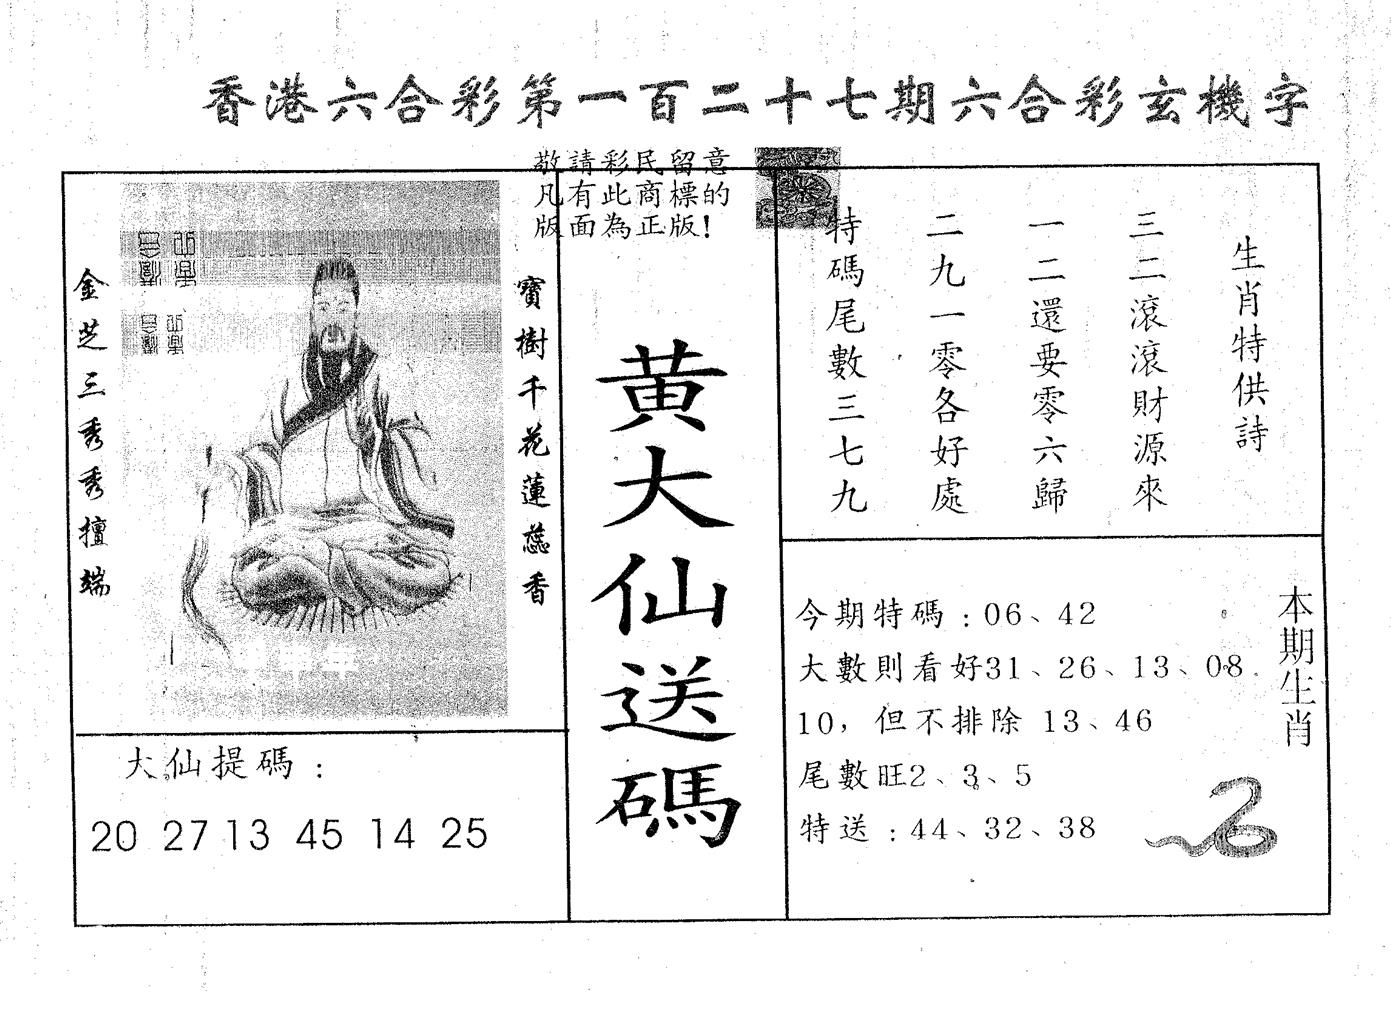 香港六合彩第一百二十七期六合彩玄機字
敬請彩民留意
凡有此商標的
版面為正版!
生肖特供詩
三二滾滾財源來
一二還要零六歸
二九一零各好處
特碼尾數三七九
黃大仙送碼
寶樹千花蓮蕊香
金芝三秀秀擅端
大仙提碼：
20 27 13 45 14 25
本期生肖
今期特碼：06、42
大數則看好31、26、13、08
10，但不排除 13、46
尾數旺2、3、5
特送：44、32、38